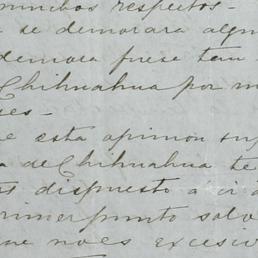 muchos respetos-
se demorara algu
demora fuese tan
Chihuahua por m
es-
e esta opinion su
a de Chihuahua te
as dispuesto a ci a
primer punto salv
que no es excesiv